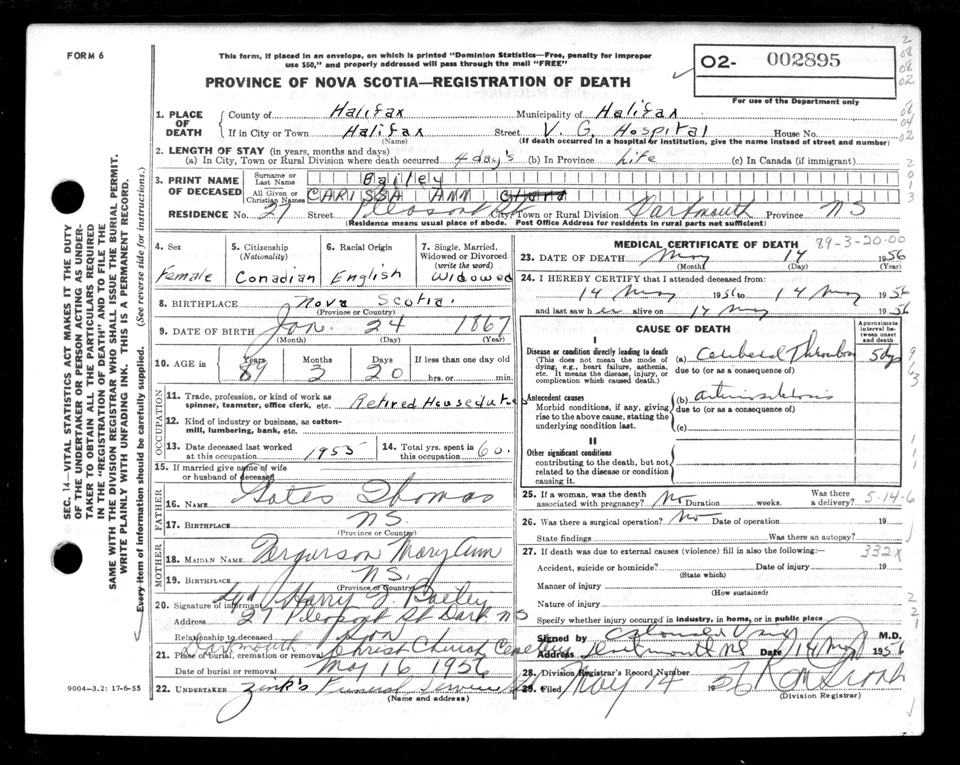 FORM 6
This form, if placed in an envelope, on which is printed "Dominion Statistics—Free, penalty for improper
use $50," and properly addressed will pass through the mail "FREE"
PROVINCE OF NOVA SCOTIA—REGISTRATION OF DEATH
02- 002895
For use of the Department only
1. PLACE OF DEATH
County of Halifax Municipality of Halifax
If in City or Town Halifax Street V. G. Hospital House No.
(Name) (If death occurred in a hospital or institution, give the name instead of street and number)
2. LENGTH OF STAY (in years, months and days)
(a) In City, Town or Rural Division where death occurred 4 day's (b) In Province Life (c) In Canada (if immigrant)
3. PRINT NAME OF DECEASED
Surname or Last Name Bailey
All Given or Christian Names CARISSA ANN
RESIDENCE No. 27 Street Pleasant St City, Town or Rural Division Dartmouth Province NS
(Residence means usual place of abode. Post Office Address for residents in rural parts not sufficient)
4. Sex
Female
5. Citizenship
(Nationality)
Canadian
6. Racial Origin
English
7. Single, Married,
Widowed or Divorced
(write the word)
Widowed
8. BIRTHPLACE Nova Scotia.
(Province or Country)
9. DATE OF BIRTH Jan. 24 1867
(Month) (Day) (Year)
10. AGE in Years Months Days If less than one day old
89 3 20 hrs. or min.
OCCUPATION
11. Trade, profession, or kind of work as
spinner, teamster, office clerk, etc. Retired Housedutes
12. Kind of industry or business, as cotton-
mill, lumbering, bank, etc.
13. Date deceased last worked
at this occupation 1955
14. Total yrs. spent in
this occupation 60.
15. If married give name of wife
or husband of deceased
FATHER
16. NAME Gates Thomas
17. BIRTHPLACE NS.
(Province or Country)
MOTHER
18. MAIDEN NAME Fergurson Mary Ann
19. BIRTHPLACE NS.
(Province or Country)
20. Signature of informant Sgd Harry J. Bailey
Address 27 Pleasant St Dart NS
Relationship to deceased Son
21. Place of burial, cremation or removal Dartmouth Christ Church Cemetery
Date of burial or removal May 16 1956
22. UNDERTAKER Zink's Funeral Service
(Name and address)
9004—3.2: 17-6-55
MEDICAL CERTIFICATE OF DEATH 89-3-20-00
23. DATE OF DEATH May 14 1956
(Month) (Day) (Year)
24. I HEREBY CERTIFY that I attended deceased from:
14 May 1956 to 14 May 1956
and last saw her alive on 14 May 1956
CAUSE OF DEATH
Approximate
interval be-
tween onset
and death
I
Disease or condition directly leading to death
(This does not mean the mode of
dying, e.g., heart failure, asthenia,
etc. It means the disease, injury, or
complication which caused death.)
(a) Cerebral Thrombosis 5 dys
due to (or as a consequence of)
Antecedent causes
Morbid conditions, if any, giving
rise to the above cause, stating the
underlying condition last.
(b) arteriosclerosis
due to (or as a consequence of)
(c)
II
Other significant conditions
contributing to the death, but not
related to the disease or condition
causing it.
25. If a woman, was the death
associated with pregnancy? No Duration weeks. Was there
a delivery? 5-14-6
26. Was there a surgical operation? No Date of operation 19
State findings Was there an autopsy?
27. If death was due to external causes (violence) fill in also the following: 332x
Accident, suicide or homicide? Date of injury 19
(State which)
Manner of injury
(How sustained)
Nature of injury
Specify whether injury occurred in industry, in home, or in public place
Signed by M.D.
Address Dartmouth NS Date 14 May 1956
28. Division Registrar's Record Number
29. Filed May 14 1956
(Division Registrar)
SEC. 14—VITAL STATISTICS ACT MAKES IT THE DUTY
OF THE UNDERTAKER OR PERSON ACTING AS UNDER-
TAKER TO OBTAIN ALL THE PARTICULARS REQUIRED
IN THE "REGISTRATION OF DEATH" AND TO FILE THE
SAME WITH THE DIVISION REGISTRAR WHO SHALL ISSUE THE BURIAL PERMIT.
WRITE PLAINLY WITH UNFADING INK. THIS IS A PERMANENT RECORD.
Every item of information should be carefully supplied. (See reverse side for instructions.)